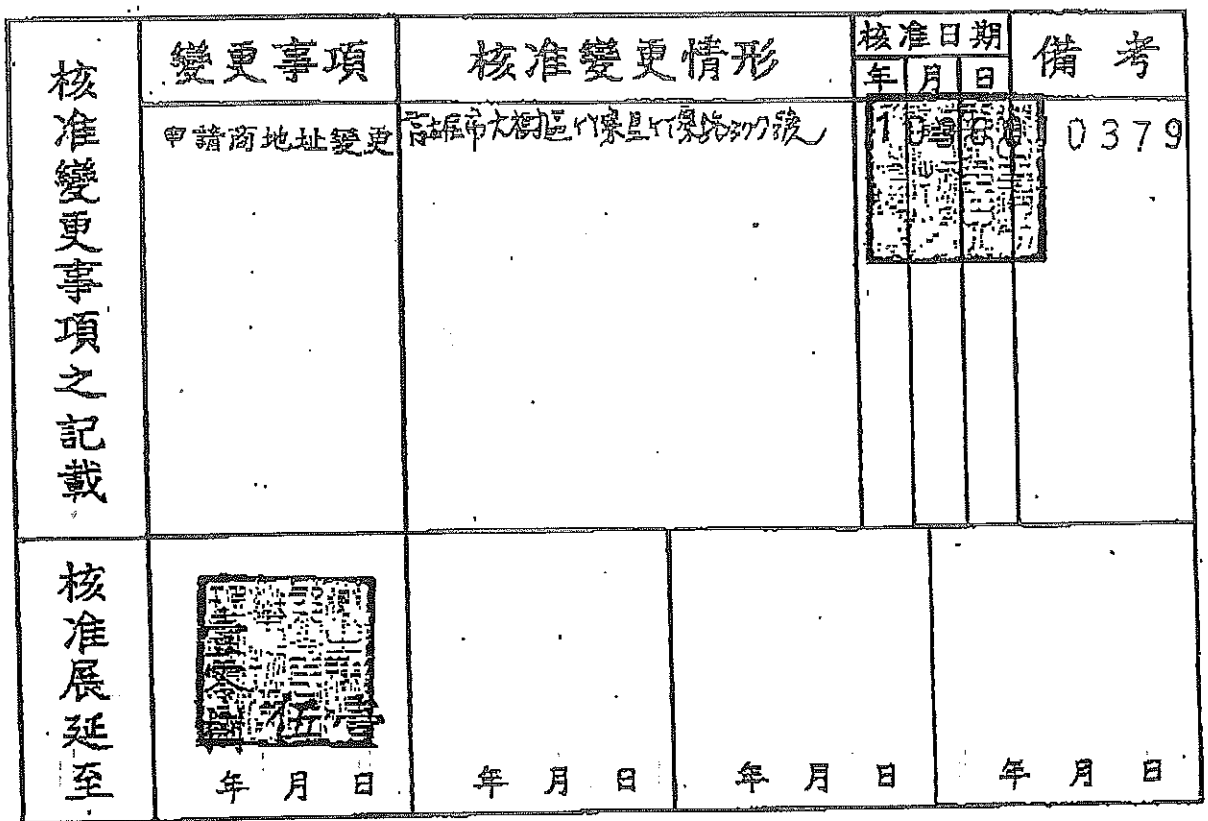 核准變更事項之記載
變更事項
核准變更情形
核准日期
年 月 日
備考
申請商地址變更
高雄市大樹區竹寮里竹寮路
號
0379
核准展延至
伍 壹
年 月 日
年 月 日
年 月 日
年 月 日